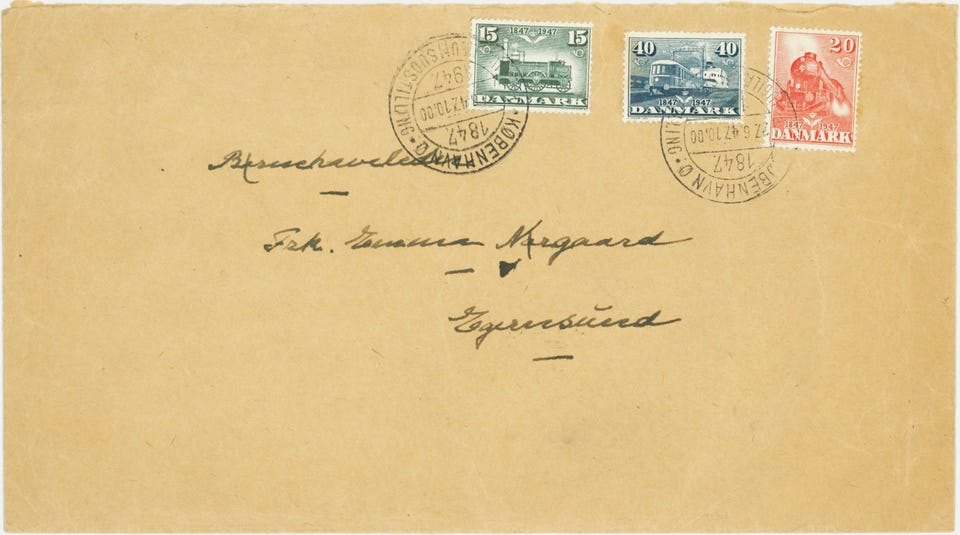 15 1847 1947 15
DANMARK
40 40
1847 1947
DANMARK
20
1847 1947
DANMARK
1947
47.10.00
1847
KØBENHAVN Ø
27.6.47.10.00
1847
KØBENHAVN Ø
Frk. Emma Nørgaard
Egernsund